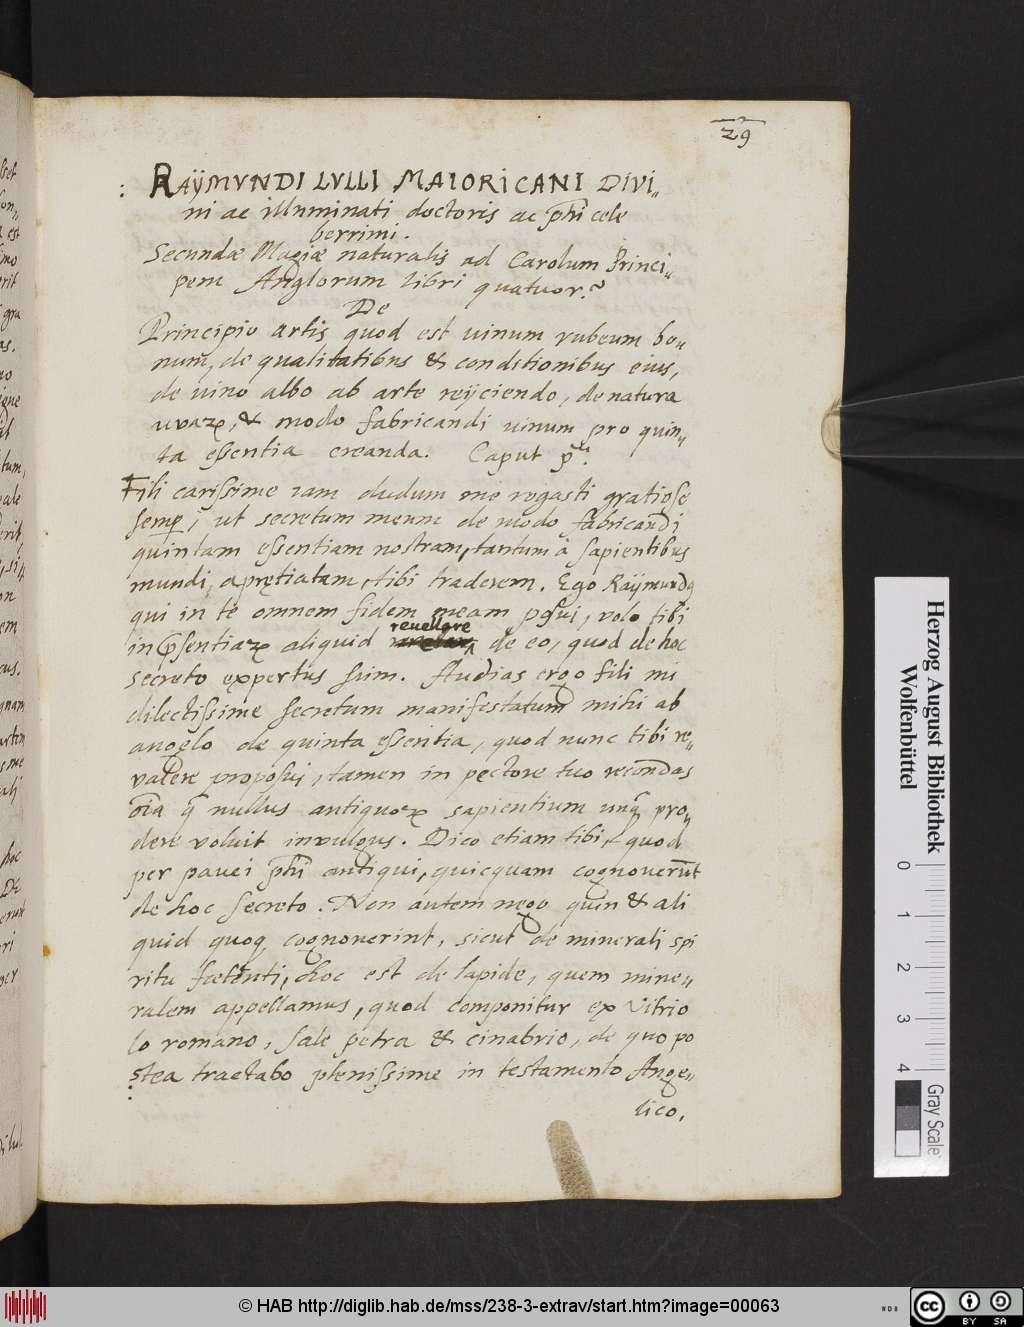 29
RAŸMVNDI LVLLI MAIORICANI DIVI„
ni ac illuminati doctoris ac phi cele
berrimi.
Secundæ Magiæ naturalis ad Carolum Princi„
pem Anglorum libri quatuor.
De
Principio artis quod est uinum rubeum bo„
num, de qualitatibus & conditionibus eius,
de uino albo ab arte reÿciendo, de natura
uvaꝝ, & modo fabricandi uinum pro quin„
ta essentia creanda. Caput p.
Fili carissime iam dudum me rogasti gratiose
semꝑ, ut secretum meum de modo fabricandi
quintam essentiam nostram, tantum à sapientibus
mundi, apretiatam, tibi traderem. Ego Raÿmundꝰ
qui in te omnem fidem meam posui, volo tibi
in psentiaꝝ aliquid reuellare de eo, quod de hoc
secreto expertus sum. Audias ergo fili mi
dilectissime secretum manifestatum mihi ab
angelo de quinta essentia, quod nunc tibi re„
valere proposui, tamen in pectore tuo recondas
oia q nullus antiquoꝝ sapientium unq pro„
dere voluit in vulgus. Dico etiam tibi, quod
per pauci phi antiqui, quicquam cognouerunt
de hoc secreto. Non autem nego quin & ali
quid quoq cognouerint, sicut de minerali spi
ritu fœtenti, hoc est de lapide, quem mine„
ralem appellamus, quod componitur ex Vitrio
lo romano, sale petra & cinabrio, de quo po
stea tractabo plenissime in testamento Ange„
lico,
Herzog August Bibliothek
Wolfenbüttel
0 1 2 3 4
Gray Scale
© HAB http://diglib.hab.de/mss/238-3-extrav/start.htm?image=00063
cc BY SA